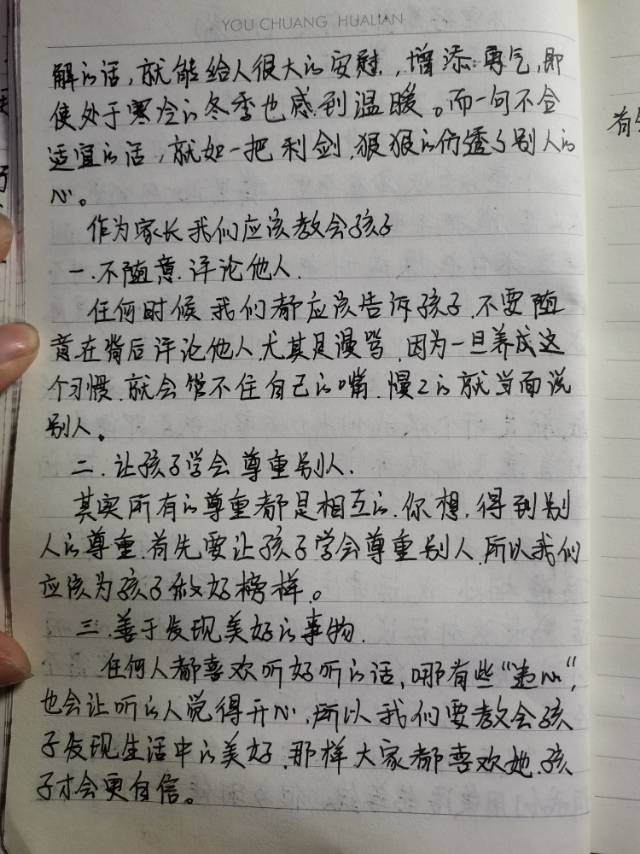 YOU CHUANG HUALIAN
解的话,就能给人很大的安慰,增添勇气,即
使处于寒冷的冬季也感到温暖。而一句不合
适宜的话,就如一把利剑,狠狠的伤透了别人的
心。
作为家长我们应该教会孩子
一.不随意评论他人.
任何时候我们都应该告诉孩子,不要随
意在背后评论他人尤其是谩骂,因为一旦养成这
个习惯,就会管不住自己的嘴,慢々的就当面说
别人。
二.让孩子学会尊重别人.
其实所有的尊重都是相互的.你想,得到别
人的尊重,首先要让孩子学会尊重别人,所以我们
应该为孩子做好榜样。
三.善于发现美好的事物.
任何人都喜欢听好听的话,哪有些“违心”,
也会让听的人觉得开心,所以我们要教会孩
子发现生活中的美好,那样大家都喜欢她,孩
子才会更自信。